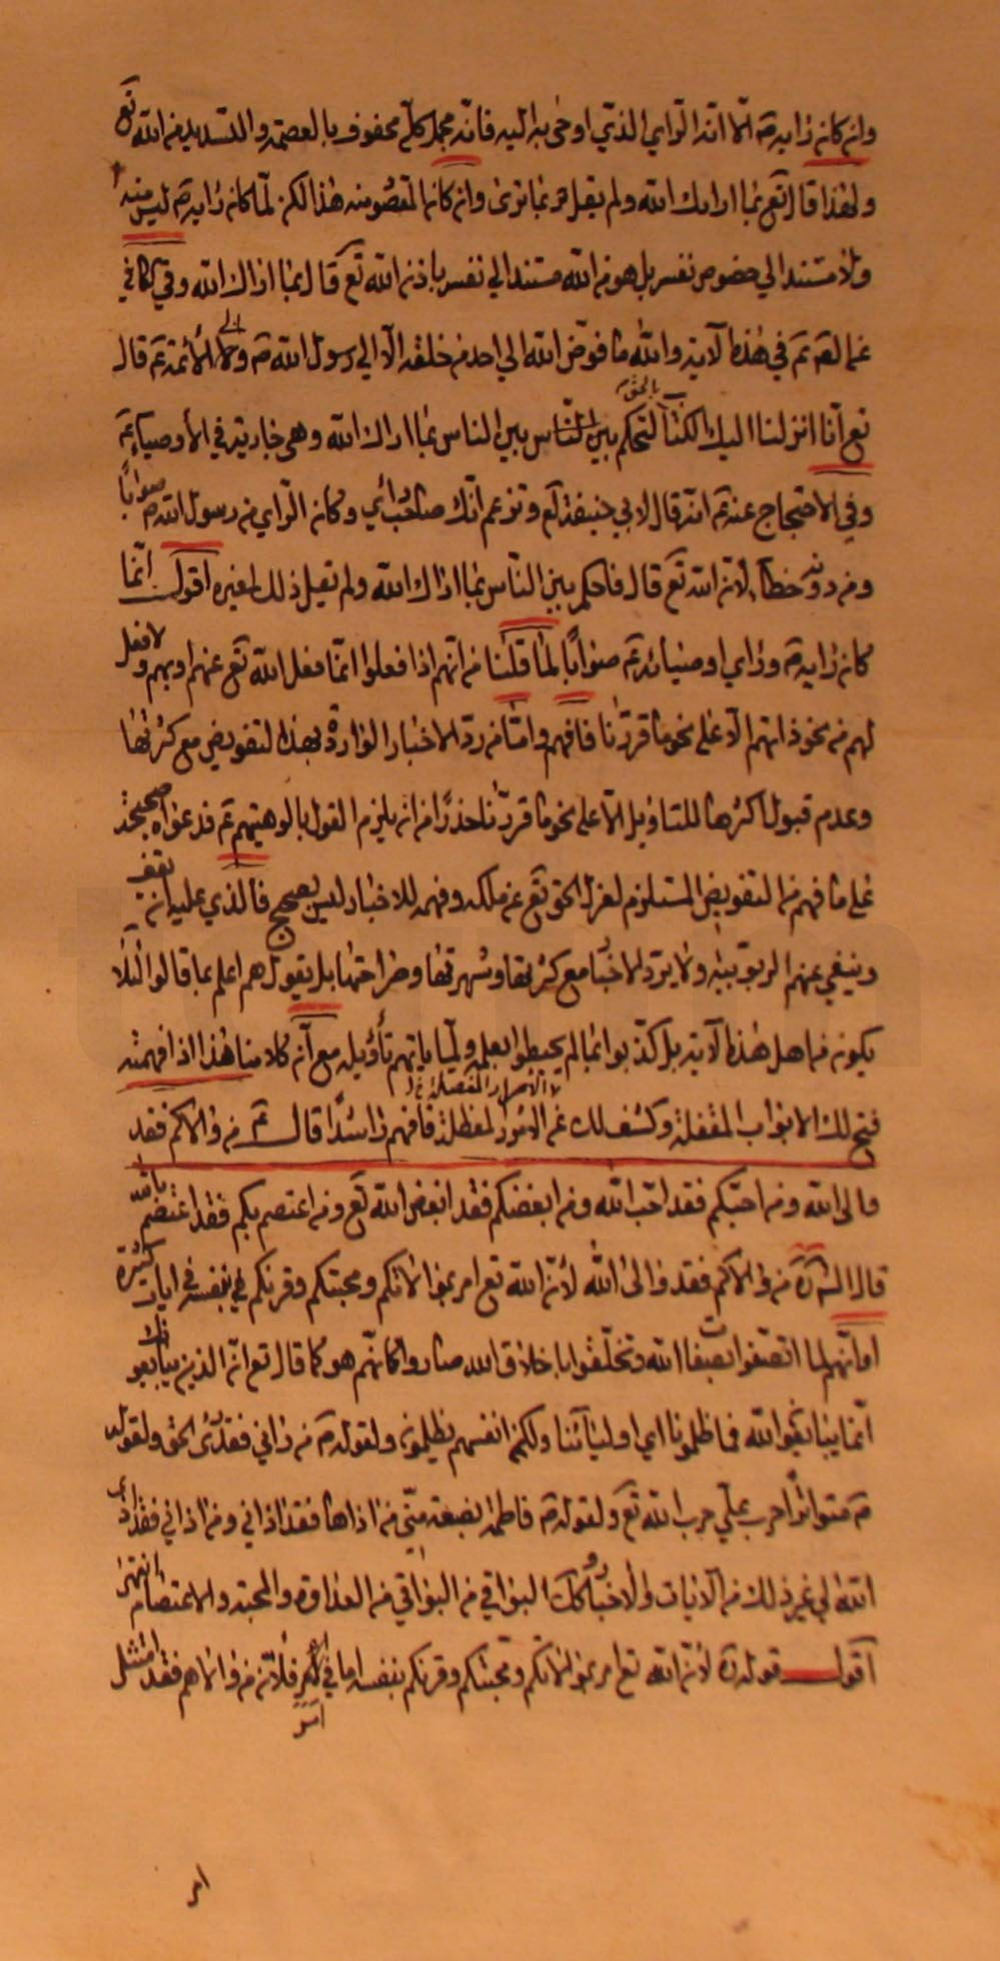 وان كان رايه ص الا انه الراي الذي اوحى به اليه فانه مجمل كله محفوف بالعصمة والتسديد من الله تع
ولهذا قال تع بما اراك الله ولم يقل بما ترى وان كان المقصود منه هذا لكن لما كان رايه ص ليس منه
ولا مستندا الي خصوص نفسه بل هو من الله مستندا الي نفسه باذن الله تع قال بما اراك الله وفي الكافي
عن الصم عم في هذه الآية والله ما فوض الله الي احد من خلقه الا الي رسول الله ص والي الأئمة عم قال
تع انا انزلنا اليك الكتاب بالحق لتحكم بين الناس بين الناس بما اراك الله وهي جارية في الأوصياء عم
وفي الاحتجاج عنه عم انه قال لابي حنيفة وتزعم انك صاحب راي وكان الراي من رسول الله ص صوابا
ومن دونه خطاء لان الله تع قال فاحكم بين الناس بما اراك الله ولم يقل ذلك لغيره اقول انما
كان رايه ص وراي اوصيائه عم صوابا لما قلنا من انهم اذا فعلوا انما فعل الله تع عنهم اوبهم ولا فعل
لهم من نحو ذاتهم الا على نحو ما قررنا فافهم واما من رد الاخبار الواردة بهذا التفويض مع كثرتها
وعدم قبول اكثرها للتاويل الا على نحو ما قررنا حذرا من انه يلزم القول بالوهيتهم عم فدعواه صحيحة
على ما فهم من التفويض المستلزم لعزل الحق تع عن ملكه وفهمه للاخبار ليس بصحيح فالذي عليه ان يقف
وينفي عنهم الربوبية ولا يرد الاخبار مع كثرتها وشهرتها وصراحتها بل يقول هم اعلم بما قالوا لئلا
يكون من اهل هذه الآية بل كذبوا بما لم يحيطوا بعلمه ولما ياتهم تأويله مع ان كلامنا هذا اذا فهمته
فتح لك الابواب المقفلة وكشف لك عن الاسرار المعضلة فافهم راشدا قال عم من والاكم فقد
والى الله ومن احبكم فقد احب الله ومن ابغضكم فقد ابغض الله تع ومن اعتصم بكم فقد اعتصم بالله
قال الشارح ره من والاكم فقد والى الله لأن الله تع امر بموالاتكم ومحبتكم وقرنكم في بنفسه في ايات كثيرة
او انهم لما اتصفوا بصفات الله وتخلقوا باخلاق الله صاروا كانهم هو كما قال تع ان الذين يبايعونك
انما يبايعون الله فما ظلمونا اي اوليائنا ولكن انفسهم يظلمون ولقوله ص من راني فقد رأى الحق ولقوله
ص متواترا حرب علي حرب الله تع ولقوله ص فاطمة بضعة مني من اذاها فقد اذاني ومن اذاني فقد اذى
الله الي غير ذلك من الآيات والاخبار وكذلك البواقي من البواقي من العداوة والمحبة والاعتصام انتهى
اقول قوله ره لأن الله تع امر بموالاتكم ومحبتكم وقرنكم بنفسه اما في الامر فلأن من والاهم فقد امتثل
امر